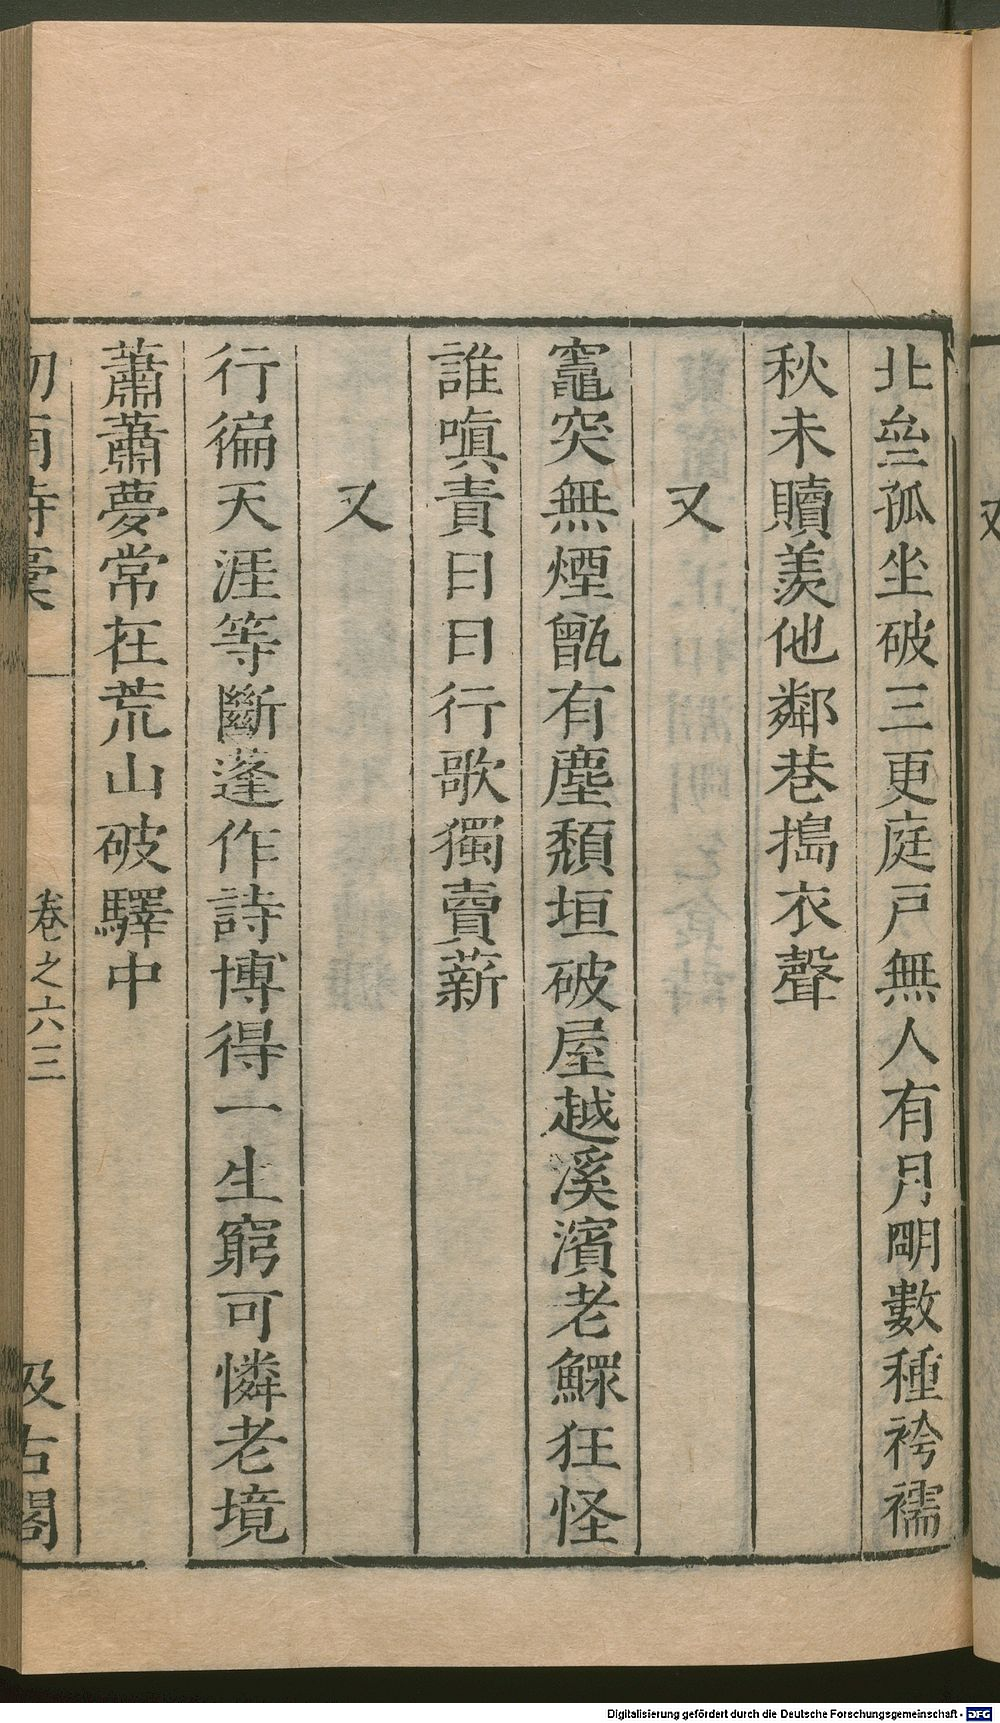 北壘孤坐破三更庭戸無人有月朙數種袴襦
秋未贖羨他鄰巷搗衣聲
又
竈突無煙甑有塵頽垣破屋越溪濱老鰥狂怪
誰嗔責日日行歌獨賣薪
又
行徧天涯等斷蓬作詩博得一生窮可憐老境
蕭蕭夢常在荒山破驛中
卷之六 三
汲古閣
又
Digitalisierung gefördert durch die Deutsche Forschungsgemeinschaft - DFG